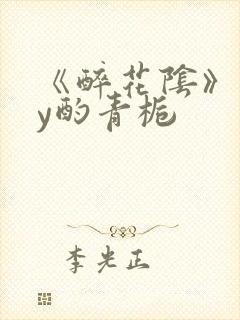 《醉花陰》
y酌青栀
李光正